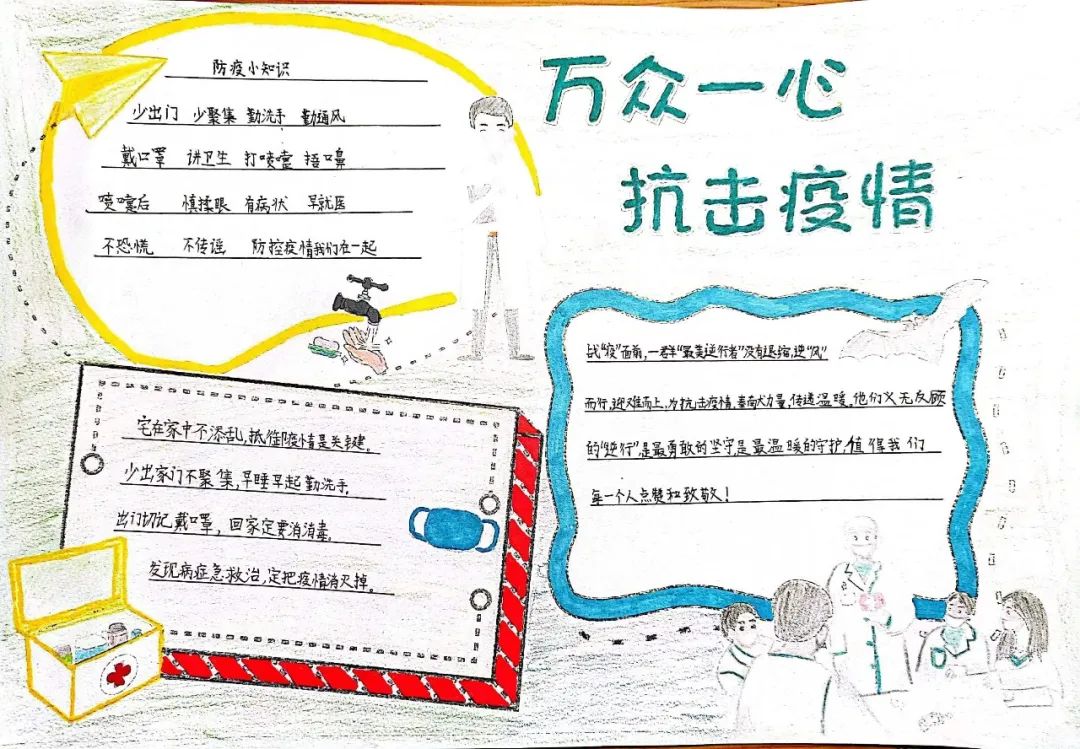 万众一心
抗击疫情
防疫小知识
少出门 少聚集 勤洗手 勤通风
戴口罩 讲卫生 打喷嚏 捂口鼻
喷嚏后 慎揉眼 有病状 早就医
不恐慌 不传谣 防控疫情我们在一起
战“疫”面前,一群“最美逆行者”没有退缩,逆“风”
而行,迎难而上,为抗击疫情,奉献大力量,传递温暖。他们义无反顾
的“逆行”,是最勇敢的坚守,是最温暖的守护,值得我们
每一个人点赞和致敬!
宅在家中不添乱,抵御疫情是关键。
少出家门不聚集,早睡早起勤洗手,
出门切记戴口罩,回家定要消消毒。
发现病症急救治,定把疫情消灭掉。